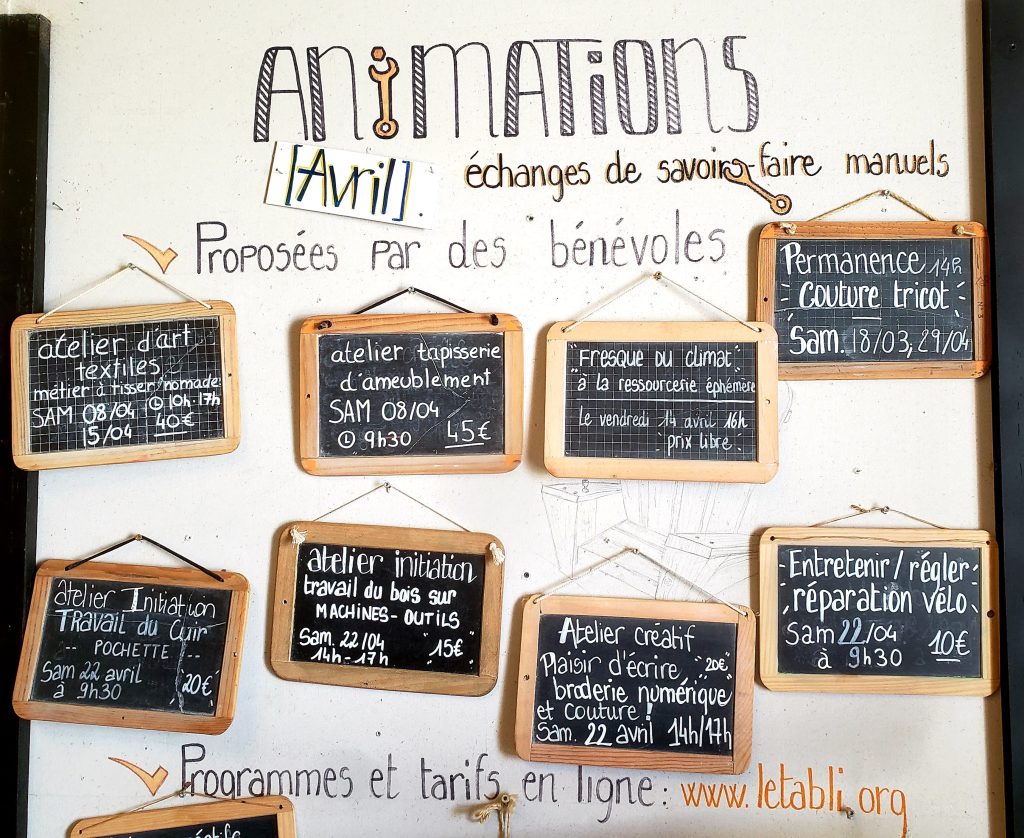 ANiMATiONS
[Avril]
échanges de savoirs-faire manuels
Proposées par des bénévoles
Permanence 14h
Couture tricot
Sam. 18/03, 29/04
atelier d'art
textiles
métier à tisser/nomade
SAM 08/04 10h-17h
15/04 40€
atelier tapisserie
d'ameublement
SAM 08/04
9h30 45€
"Fresque du climat"
à la ressourcerie éphémère
Le vendredi 14 avril 16h
prix libre
atelier Initiation
Travail du Cuir
-- POCHETTE --
Sam 22 avril
à 9h30 20€
atelier initiation
travail du bois sur
MACHINES-OUTILS
Sam. 22/04
14h-17h "15€"
Atelier créatif
Plaisir d'écrire "20€"
broderie numérique
et couture !
Sam. 22 avril 14h/17h
Entretenir/régler
réparation vélo
Sam 22/04
à 9h30 10€
Programmes et tarifs en ligne : www.letabli.org